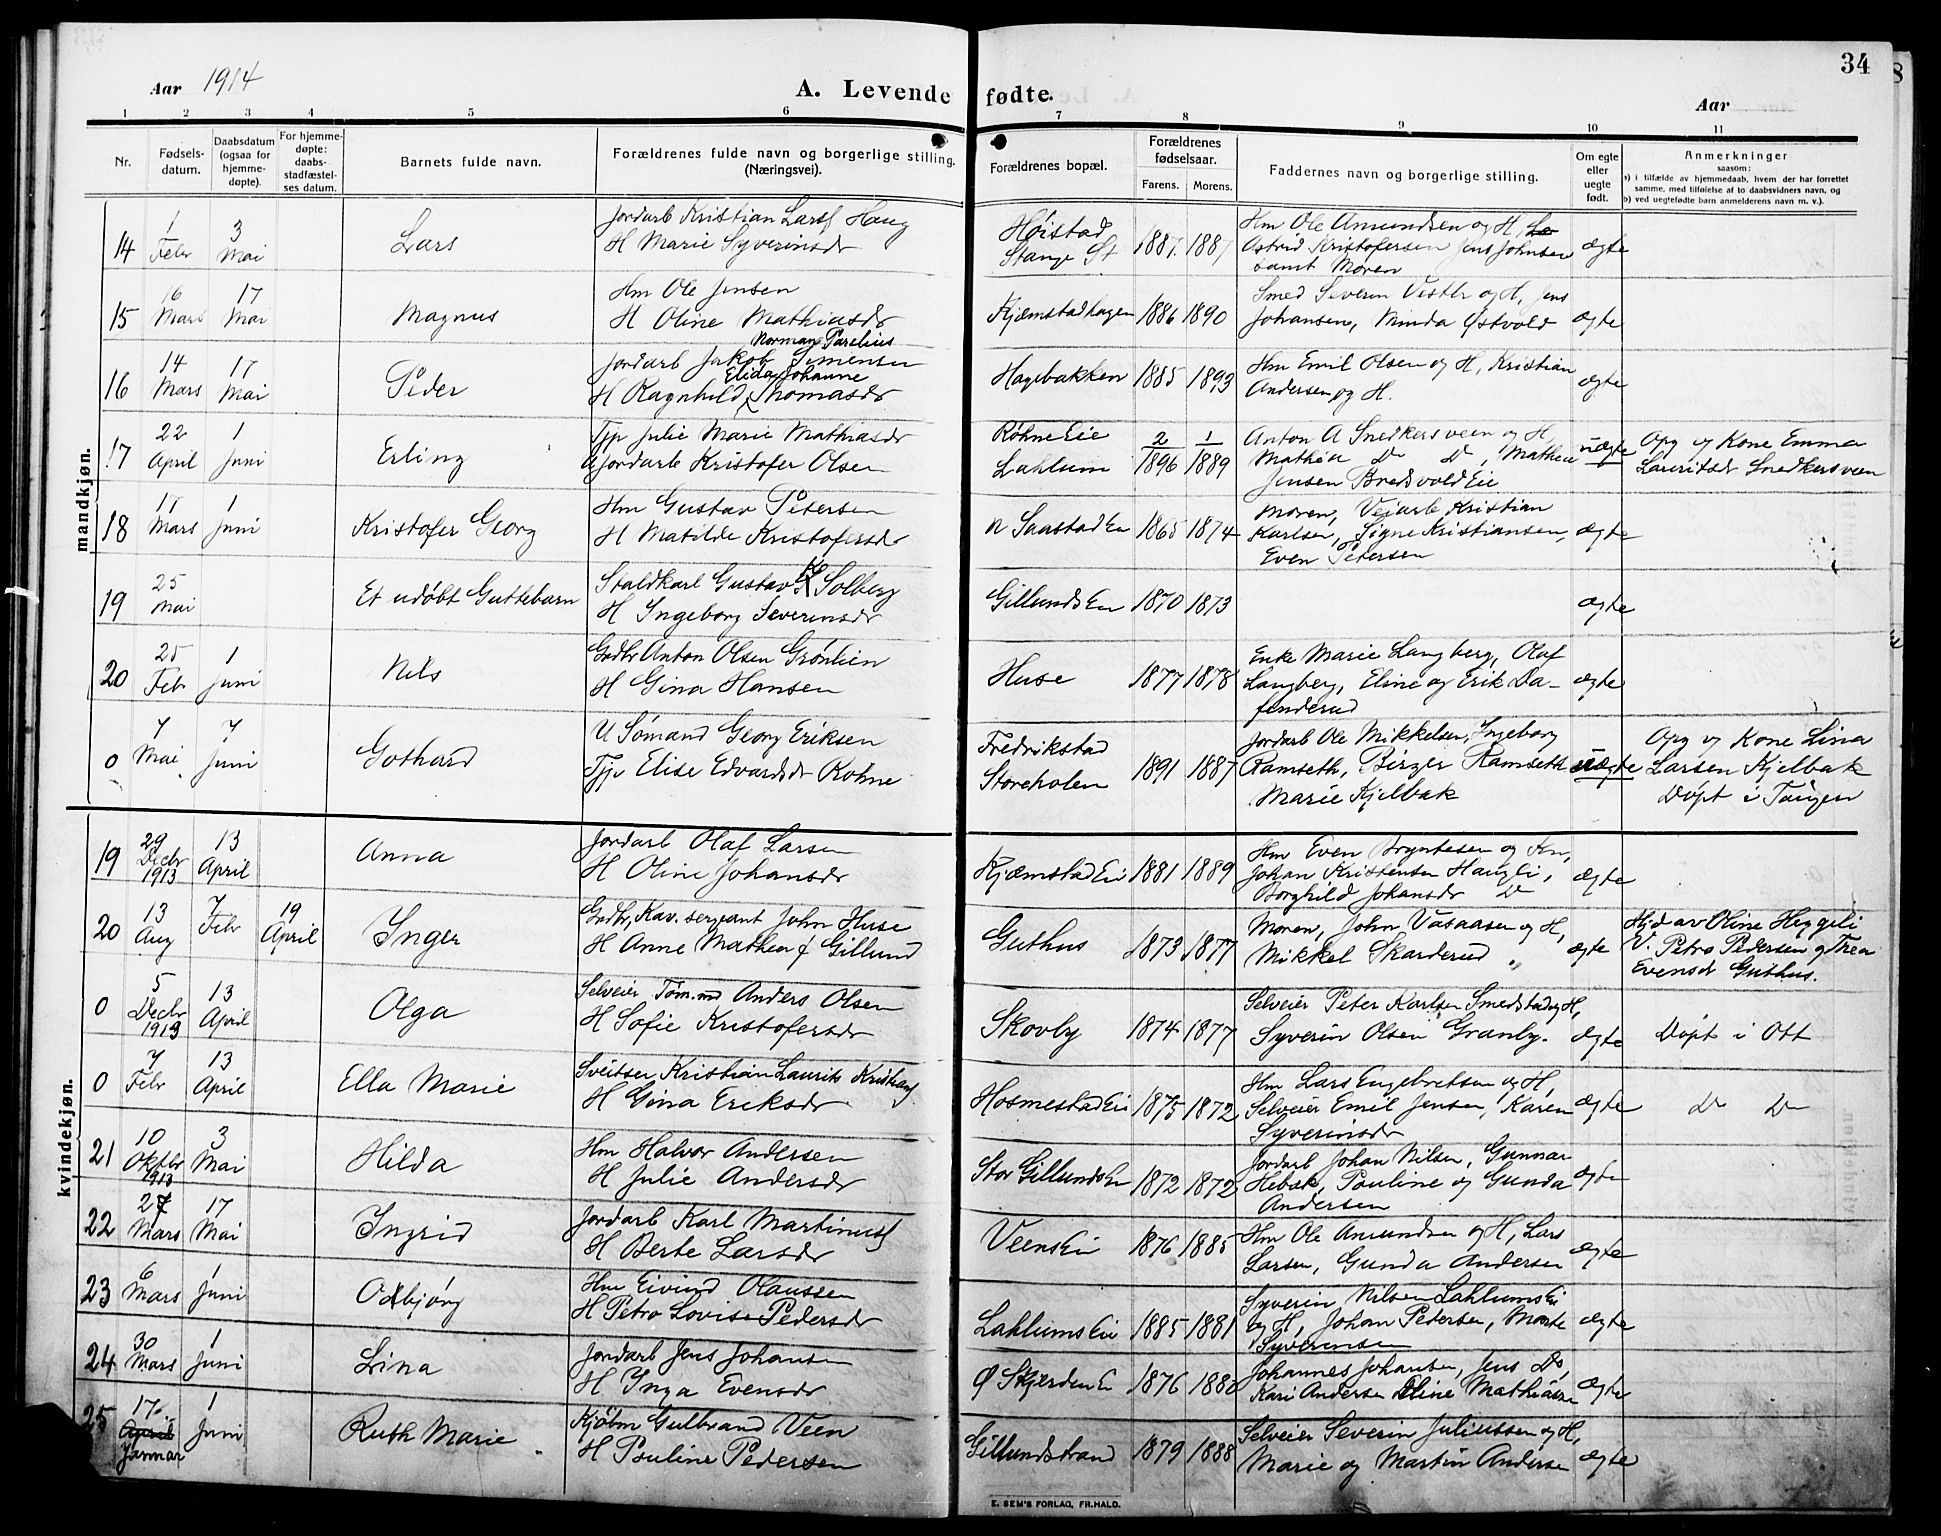 34
Aar 1914
A. Levende fødte.
Aar
1 2 3 4 5 6 7 8 9 10 11
Nr.
Fødsels-
datum.
Daabsdatum
(ogsaa for
hjemme-
døpte).
For hjemme-
døpte:
daabs-
stadfæstel-
ses datum.
Barnets fulde navn.
Forældrenes fulde navn og borgerlige stilling.
(Næringsvei).
Forældrenes bopæl.
Forældrenes
fødselsaar.
Farens. Morens.
Faddernes navn og borgerlige stilling.
Om egte
eller
uegte
født.
Anmerkninger
saasom:
a) i tilfælde av hjemmedaab, hvem der har forrettet
samme, med tilføielse af to daabsvidners navn, og
b) ved uegtefødte barn anmelderens navn m. v.).
mandkjøn.
14 1 Febr 3 Mai Lars
Jordarb Kristian Larss Haug
H Marie Syverinsdr
Høistad
Stange St
1887. 1887
Hm Ole Amundsen og H,
Astrid Kristofersen Jens Johnsen
samt Moren
ægte
15 16 Mars 17 Mai Magnus
Hm Ole Jensen
H Oline Mathiasdr
Kjæmstadhagen 1886 1890
Smed Severin Vestlr og H, Jens
Johansen, Minda Østvold
ægte
16 14 Mars 17 Mai Peder
Norman Parelius
Jordarb Jakob Simensen
Elida Johanne
H Ragnhild Thomasdr
Hagebakken 1885 1893
Hm Emil Olsen og H, Kristian
Andersen og H.
ægte
17 22 April 1 Juni Erling
Tjp Julie Marie Mathiasdr
Gjordarb Kristofer Olsen
Røhne Eie
Lahlum
2/1896 1/1889
Anton A Snedkersveen og H,
Mathea Do Do, Mathea
Jensen Bredvold Eie
uægte
Opg v Kone Emma
Lauritsdr Snedkersveen
18 17 Mars 1 Juni Kristofer Georg
Hm Gustav Petersen
H Matilde Kristofersdr
n Saastad Ei 1865 1874
Moren, Vejarb Kristian
Karlsen, Signe Kristiansen,
Even Petersen
ægte
19 25 Mai Et udøbt Guttebarn
Staldkarl Gustav Solberg
H Ingeborg Severinsdr
Gillunds Ei 1870 1873 ægte
20 25 Febr 1 Juni Nils
Gaardbr Anton Olsen Grønlien
H Gina Hansen
Huse 1877 1878
Enke Marie Langberg, Olaf
Langberg, Eline og Erik Da-
fenderud
ægte
0 7 Mai 7 Juni Gothard
U Sømand Georg Eriksen
Tjp Elise Edvardsdr Røhne
Fredrikstad
Storeholen
1891 1887
Jordarb Ole Mikkelsen, Ingeborg
Ramseth, Birger Ramseth
Marie Kjelbak
uægte
Opg v Kone Lina
Larsen Kjelbak
Døpt i Tangen
kvindekjøn.
19 29 Decbr 1913 13 April Anna
Jordarb Olaf Larsen
H Oline Johansdr
Kjæmstad Ei 1881 1889
Hm Even Bryntesen og Kn,
Johan Kristensen Hauglie,
Borghild Johansdr Do
ægte
20 13 Aug 7 Febr 19 April Inger
Gbr, Kav. sergeant John Huse
H Anne Mathea f Gillund
Guthus 1873 1877
Moren, John Vasaasen og H,
Mikkel Skarderud "
ægte
Hjd av Oline Heggeli
V. Petra Pedersen og Thea
Evensdr Guthus.
0 5 Decbr 1913 13 April Olga
Selveier Tøm.md Anders Olsen
H Sofie Kristofersdr
Skovby 1874 1877
Selveier Peter Karlsen Smedstad og H,
Syverin Olsen Granby.
ægte
Døpt i Ott
0 7 Febr 13 April Ella Marie
Sveitser Kristian Laurits Kristians
H Gina Eriksdr
Hosmestad Ei 1875 1872
Hm Lars Engebretsen og H,
Selveier Emil Jensen, Karen
Syverinsdr
ægte
Do Do
21 10 Oktbr 1913 3 Mai Hilda
Hm Halvor Andersen
H Julie Andersdr
Stor Gillunds Ei 1872 1872
Jordarb Johan Nilsen, Gunnar
Hebæk, Pauline og Gunda
Andersen
ægte
22 27 Mars 17 Mai Ingrid
Jordarb Karl Martinuss
H Berte Larsdr
Veens Ei 1876 1885
Hm Ole Amundsen og H, Lars
Larsen, Gunda Andersen
ægte
23 6 Mars 1 Juni Oddbjørg
Hm Eivind Olaussen
H Petra Lovise Pedersdr
Lahlums Ei 1885 1881
Syverin Nilsen Lahlums Ei
og H, Johan Pedersen, Marte
Syverinsen
ægte
24 30 Mars 1 Juni Lina
Jordarb Jens Johansen
H Inga Evensdr
Ø Skjerden Ei 1876 1880
Johannes Johansen, Jens Do,
Kari Andersen Eline Mathiasen
ægte
25 17 April Januar 1 Juni Ruth Marie
Kjøbm Gulbrand Veen
H Pauline Pedersen
Gillundstrand 1879 1888
Selveier Severin Juliussen og H,
Marie og Martin Andersen
ægte
E. SEM'S FORLAG, FR.HALD.